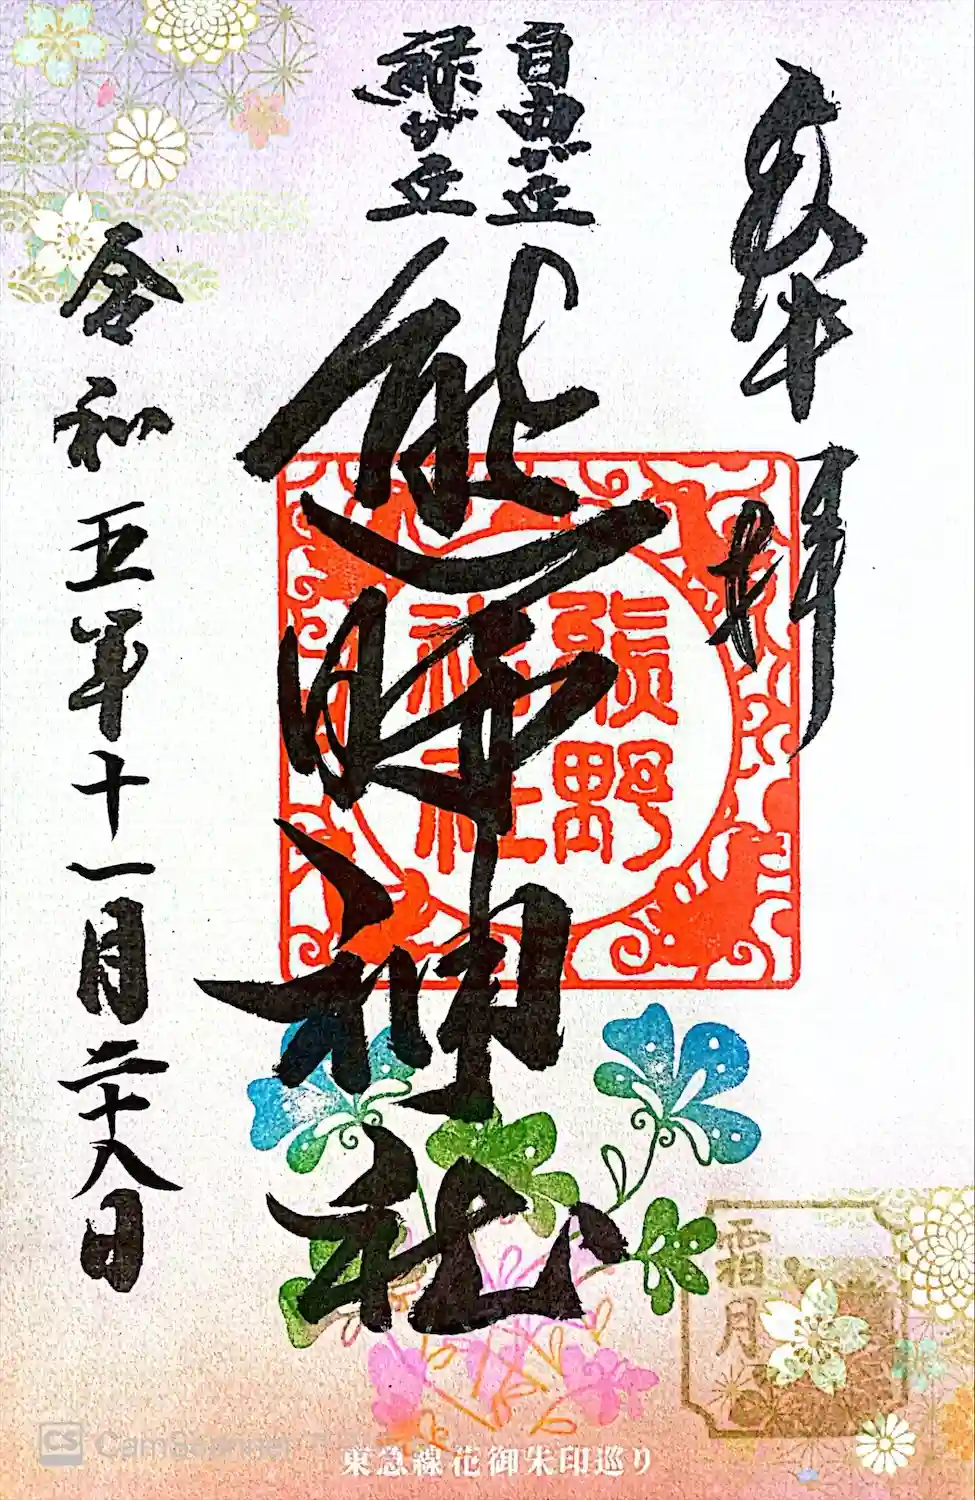 奉拝
自由が丘
緑が丘
熊野神社
熊野
神社
令和五年十一月二十八日
霜月
東急線花御朱印巡り
CS CamScanner